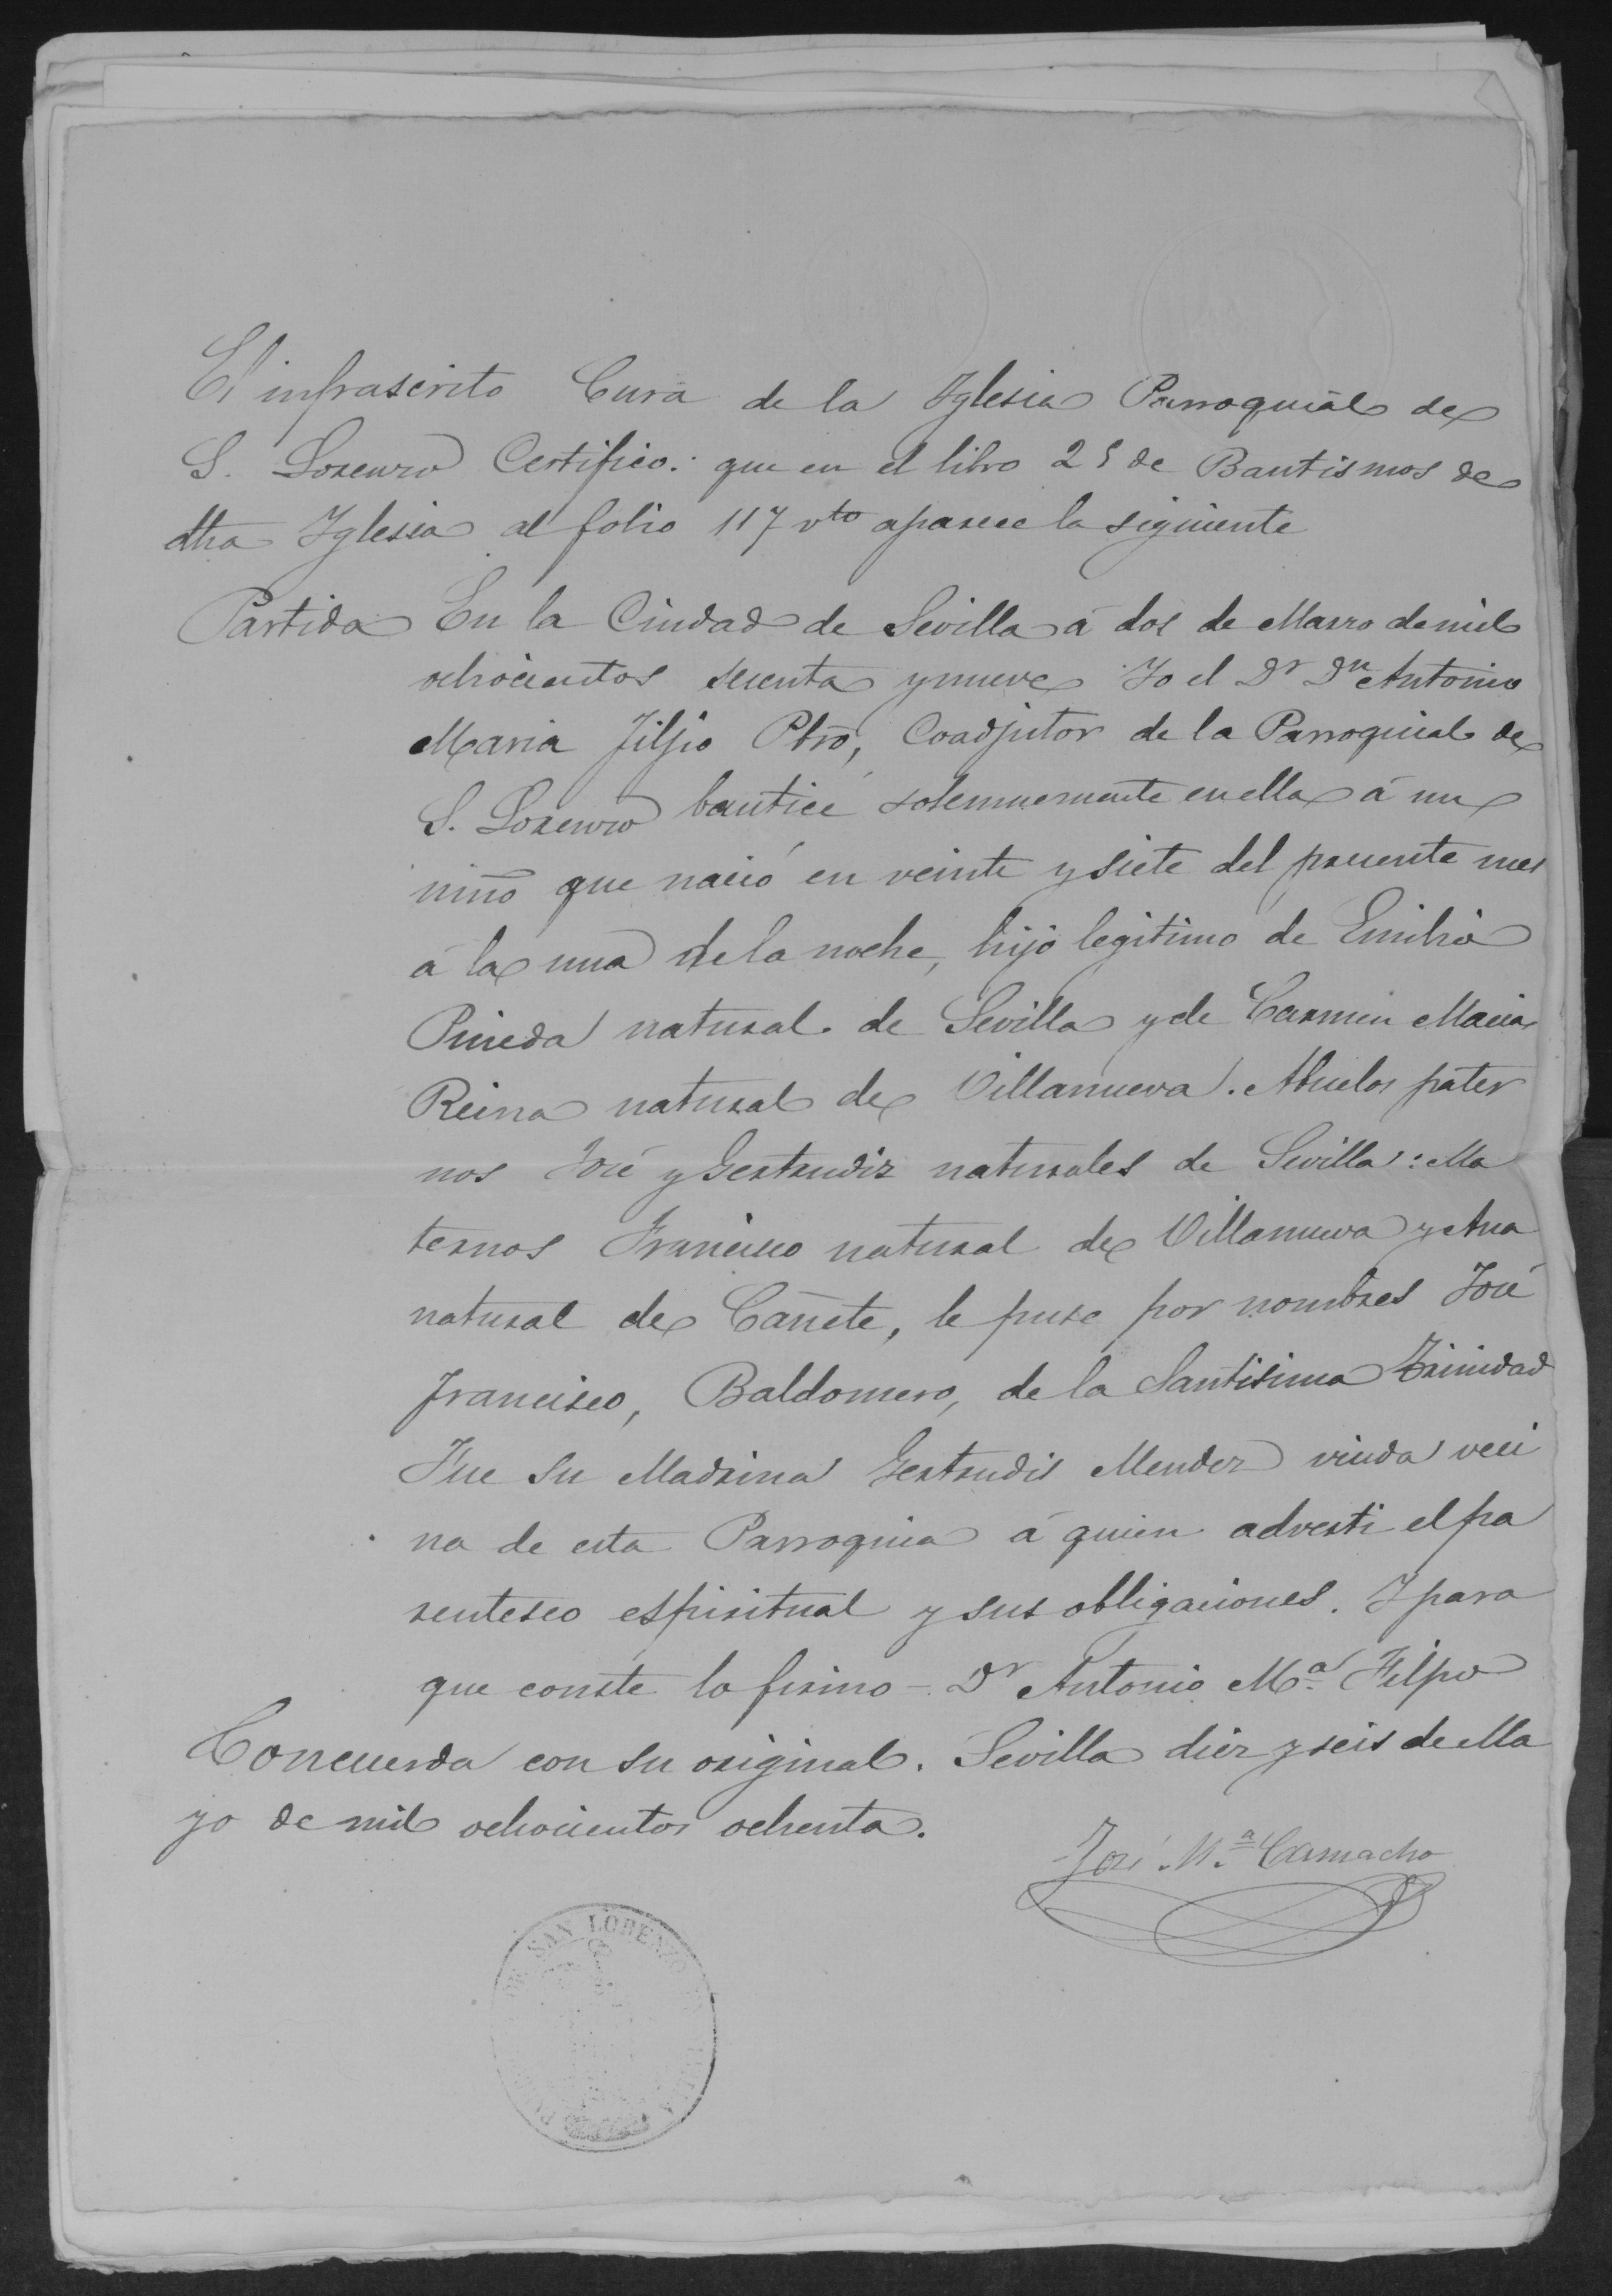 El infrascrito Cura de la Iglesia Parroquial de
S. Lorenzo Certifico: que en el libro 25 de Bautismos de
dha Iglesia al folio 117 vto aparece la siguiente
Partida En la Ciudad de Sevilla á dos de Marzo de mil
ochocientos sesenta y nueve Yo el Dr Dn Antonio
Maria Filpo Pbro, Coadjutor de la Parroquial de
S. Lorenzo bauticé solemnemente en ella á un
niño que nació en veinte y siete del presente mes
á la una de la noche, hijo legitimo de Emilio
Pineda natural de Sevilla y de Carmen Macia
Reina natural de Villanueva. Abuelos pater
nos José y Gertrudiz naturales de Sevilla: Ma
ternos Francisco natural de Villanueva y Ana
natural de Cañete, le puse por nombres José
Francisco, Baldomero, de la Santisima Trinidad
Fue su Madrina Gertrudis Mendez viuda veci
na de esta Parroquia á quien adverti el pa
rentesco espiritual y sus obligaciones. Y para
que conste lo firmo - Dr Antonio Mª Filpo
Concuerda con su original. Sevilla diez y seis de Ma
yo de mil ochocientos ochenta.
José Mª Camacho
DE SAN LORENZO